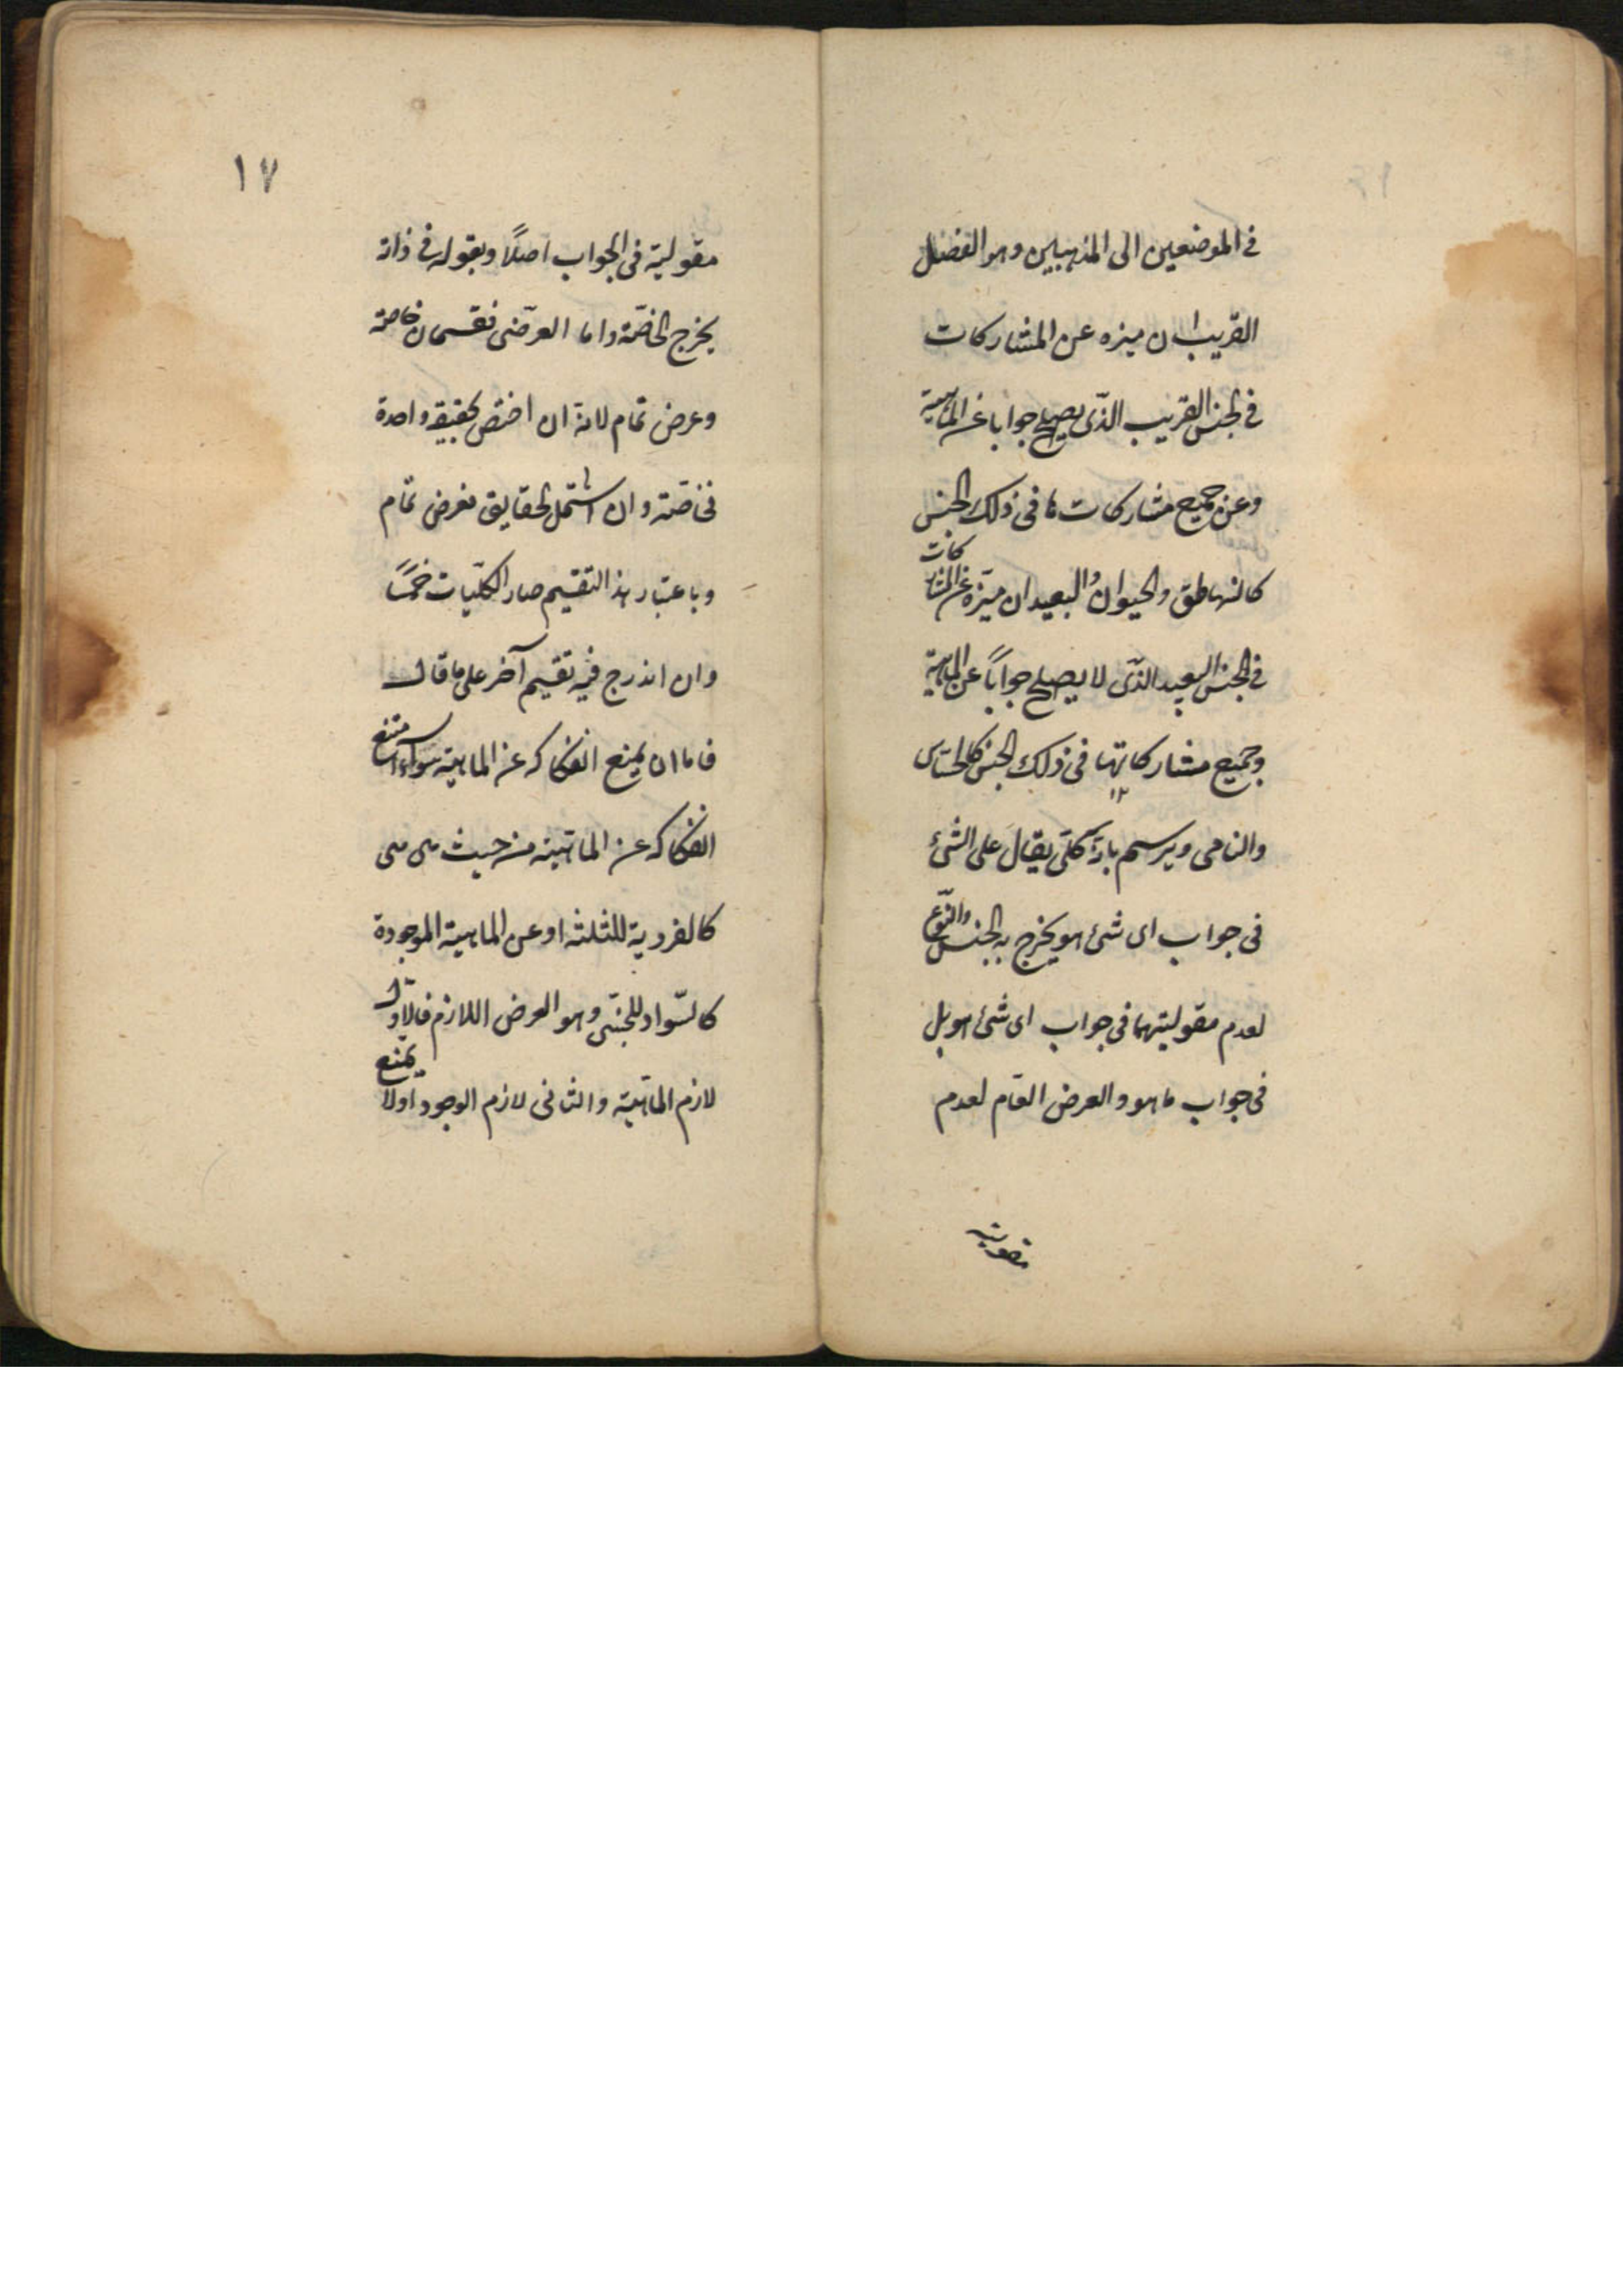 في الموضعين الى المذهبين وهو الفصل
القريب ان ميزه عن المشاركات
في الجنس القريب الذى يصلح جوابا عن الماهية
وعن جميع مشاركات ما فى ذلك الجنس
كالناطق والحيوان والبعيد ان ميزه عن المشاركات
في الجنس البعيد الذى لا يصلح جواباً عن الماهية
وجميع مشاركاتها فى ذلك الجنس كالحساس
والنامى ويرسم بانه كلى يقال على الشئ
فى جواب اى شئ هو يخرج به الجنس والنوع
لعدم مقوليتهما فى جواب اى شئ هو بل
فى جواب ما هو والعرض العام لعدم
مقوليته
١٧
مقوليته فى الجواب اصلاً وبقوله فى ذاته
يخرج الخاصّة واما العرضى فقسمان خاصة
وعرض عام لانه ان اختص بحقيقة واحدة
فخاصة وان اشتمل لحقايق فعرض عام
وباعتبار هذا التقسيم صار الكليات خمسًا
وان اندرج فيه تقسيم آخر على ما قال
فاما ان يمتنع انفكاكه عن الماهية سواء امتنع
انفكاكه عن الماهية من حيث هى هى
كالفردية للثلثه او عن الماهية الموجودة
كالسّواد للحبشى وهو العرض اللازم فالاول
لازم الماهية والثانى لازم الوجود اولا يمتنع